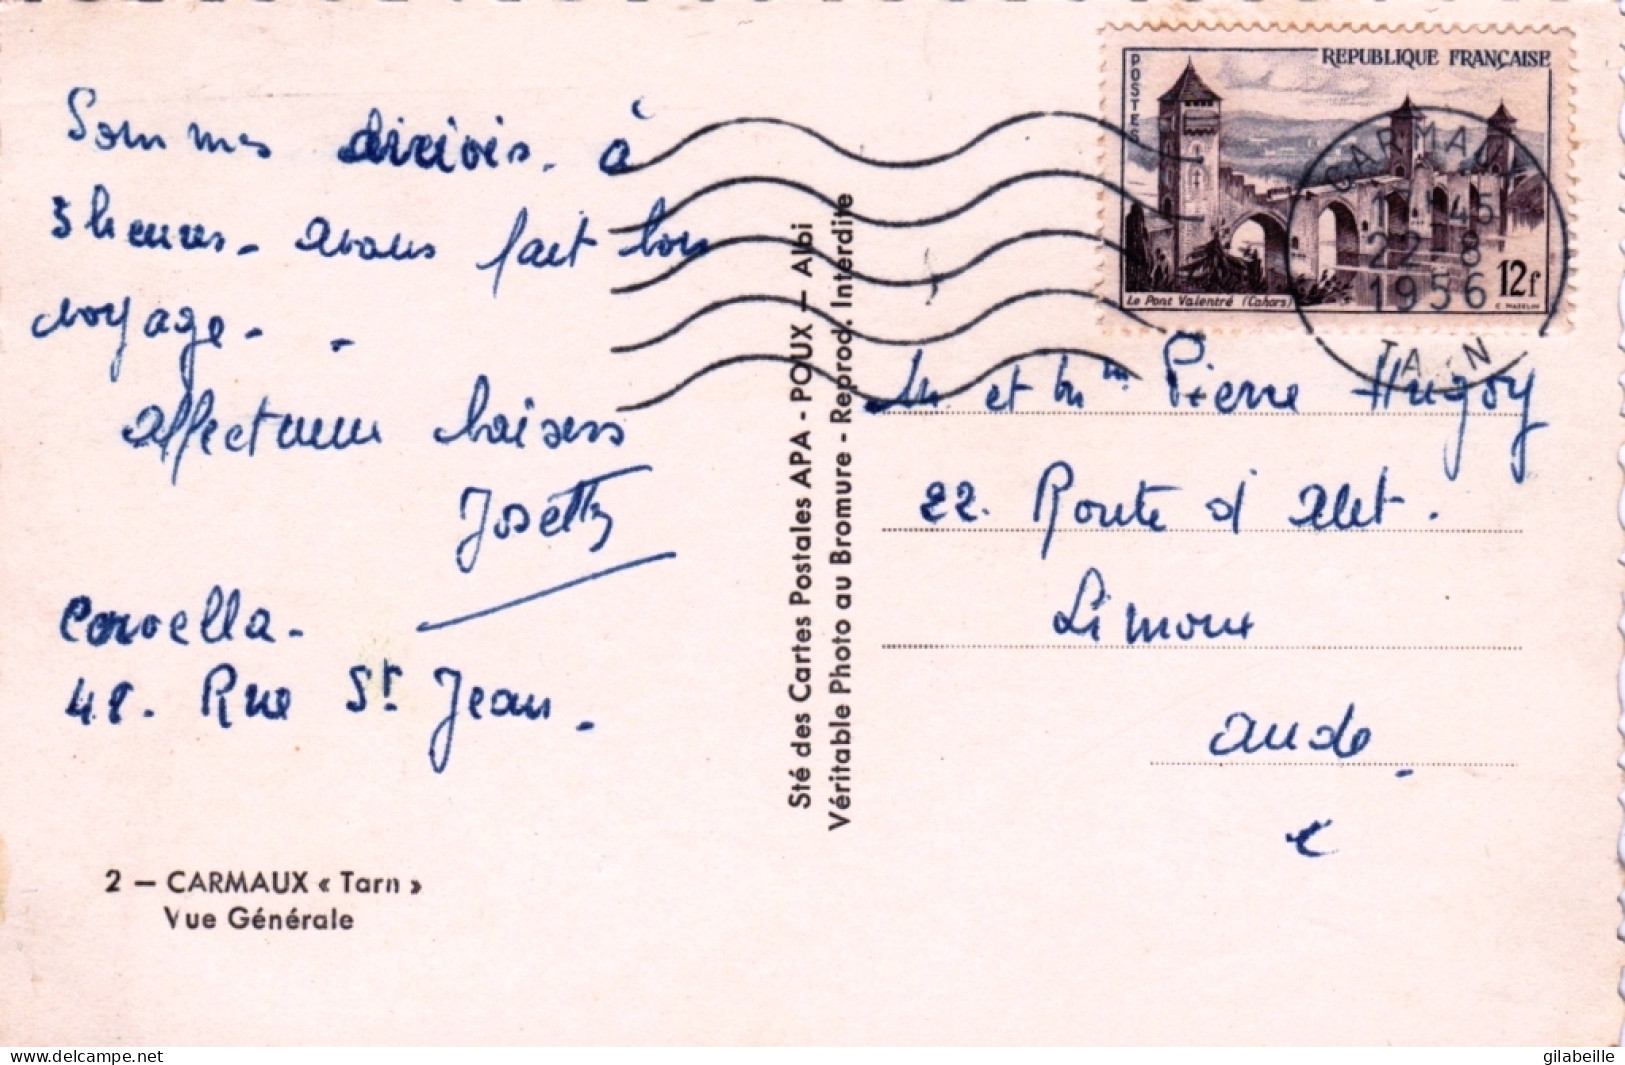 Sommes arrivés à
3 heures - avons fait bon
voyage - -
affectueux baisers
Josette
Corvella -
48. Rue St Jean -
2 — CARMAUX « Tarn »
Vue Générale
Sté des Cartes Postales APA - POUX — Albi
Véritable Photo au Bromure - Reprod. Interdite
POSTES
REPUBLIQUE FRANÇAISE
Le Pont Valentré (Cahors)
12f
C. MAZELIN
CARMAUX
22 - 8
1956
TARN
M. et Mme Pierre Hugoy
22. Route d'Alet.
Limoux
Aude
delcampe.net
gilabeille